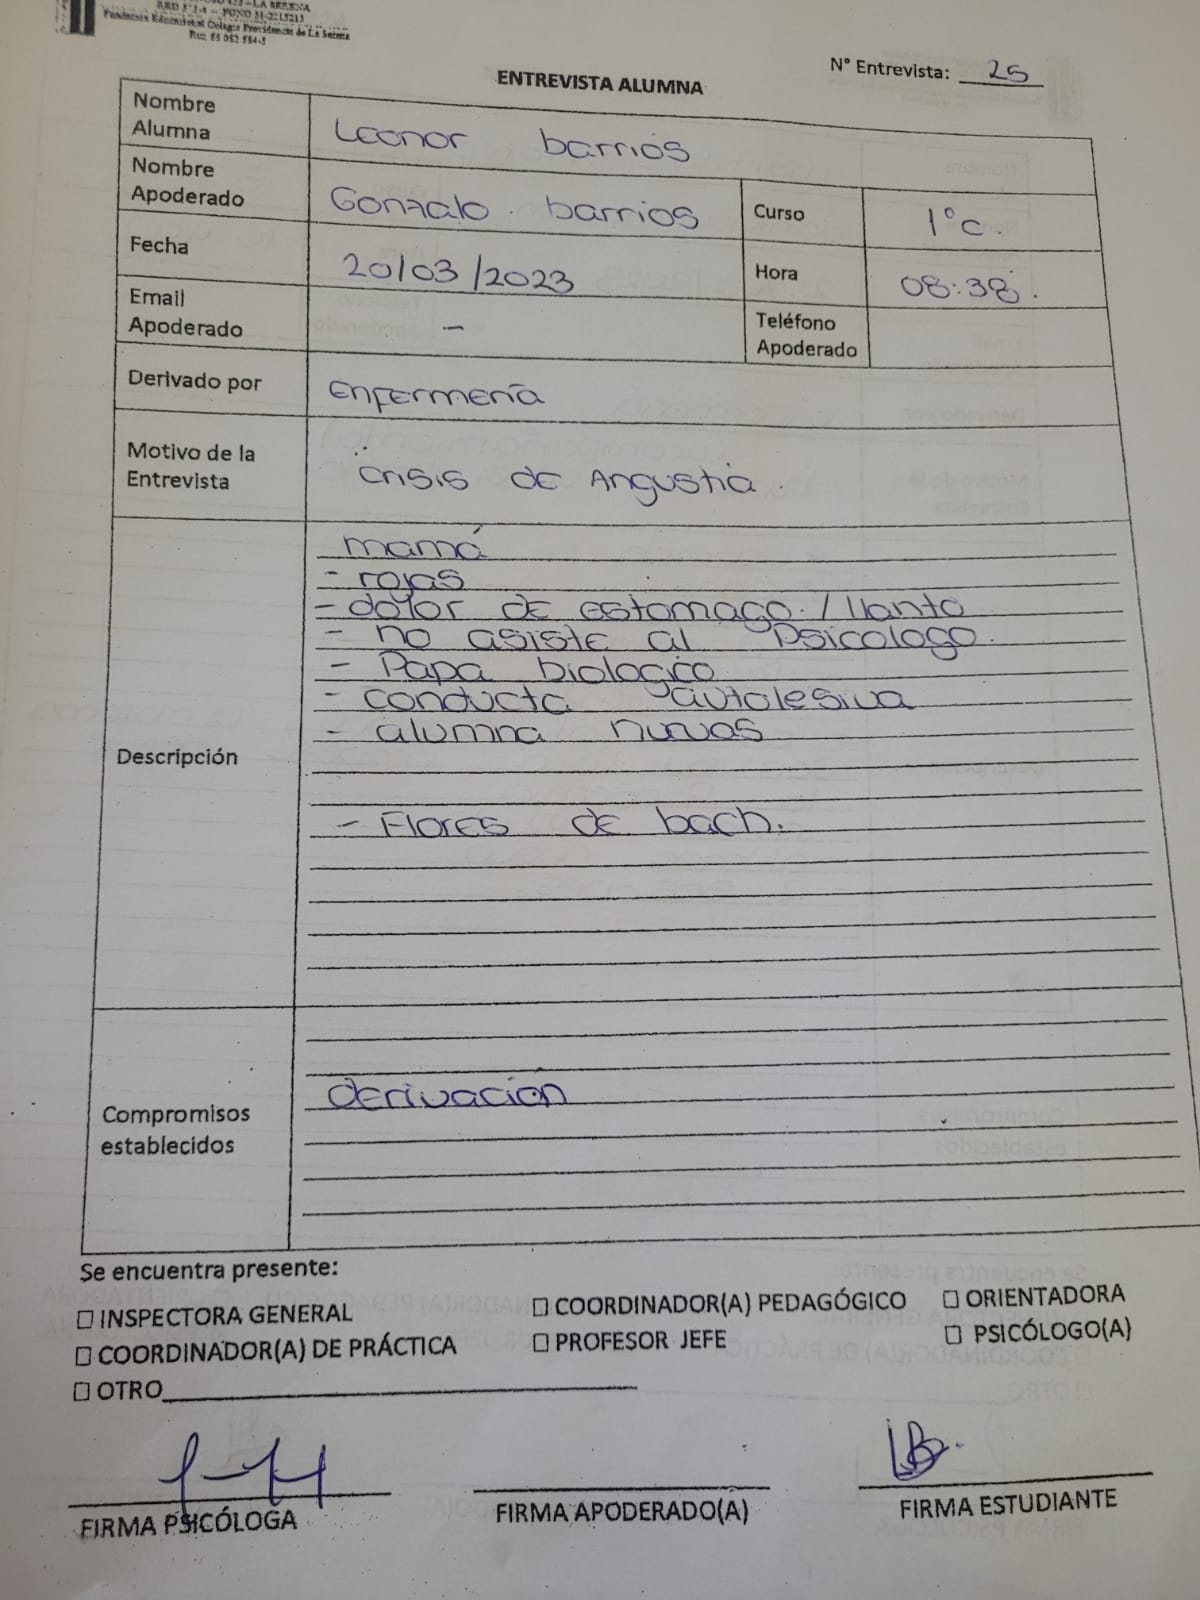 LA SERENA
Fundación Educacional Colegio Providencia de La Serena
N° Entrevista: 25
ENTREVISTA ALUMNA
Nombre Alumna Leonor barrios
Nombre Apoderado Gonzalo barrios Curso 1°c.
Fecha 20/03/2023 Hora 08:38.
Email Apoderado - Teléfono Apoderado
Derivado por Enfermería
Motivo de la Entrevista crisis de Angustia.
Descripción
mamá
- rojas
- dolor de estomago. / llanto
- no asiste al Psicologo.
- Papa biologico
- conducta autolesiva
- alumna nuevas
- Flores de bach.
Compromisos establecidos
derivación
Se encuentra presente:
☐ INSPECTORA GENERAL ☐ COORDINADOR(A) PEDAGÓGICO ☐ ORIENTADORA
☐ COORDINADOR(A) DE PRÁCTICA ☐ PROFESOR JEFE ☐ PSICÓLOGO(A)
☐ OTRO
FIRMA PSICÓLOGA FIRMA APODERADO(A) FIRMA ESTUDIANTE